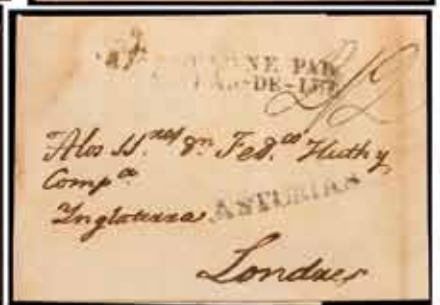 NE PAR
-DE-
2/2
A los SS.res Dn Fed.co Huth y
Comp.a
Inglaterra ASTURIAS
Londres